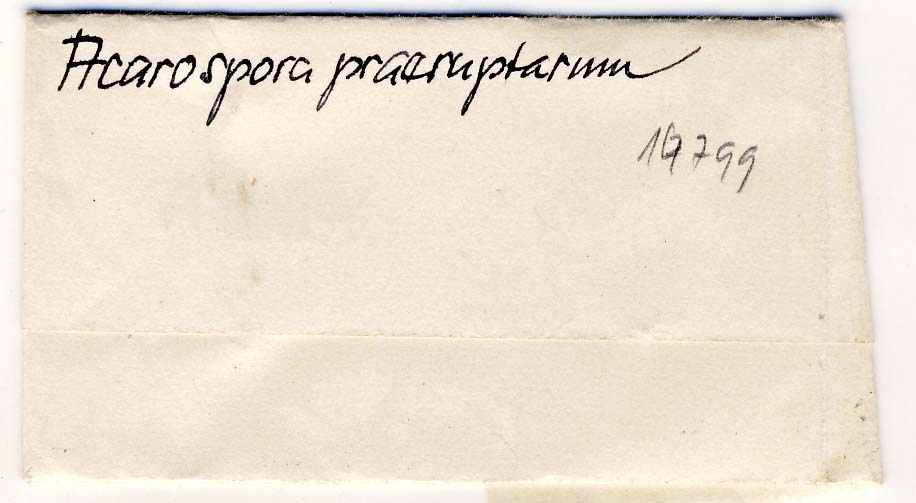 Acarospora praeruptarum